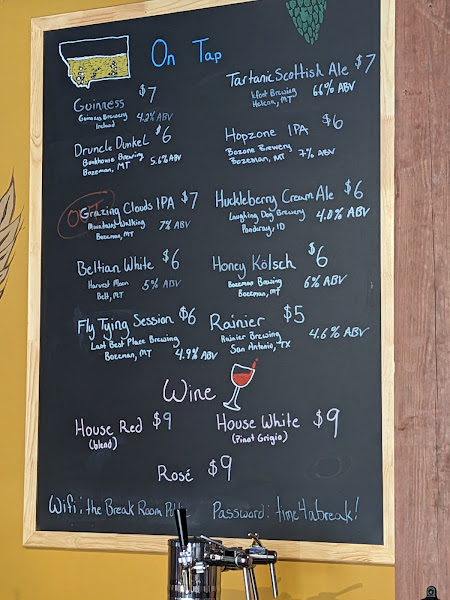 On Tap
Guinness $7
Guinness Brewery
Ireland 4.2% ABV
Druncle Dunkel $6
Bunkhouse Brewing
Bozeman, MT 5.6% ABV
OUT
Grazing Clouds IPA $7
Mountains Walking
Bozeman, MT 7% ABV
Beltian White $6
Harvest Moon
Belt, MT 5% ABV
Fly Tying Session $6
Last Best Place Brewing
Bozeman, MT 4.9% ABV
Tartanic Scottish Ale $7
Brewing
Helena, MT 6.6% ABV
Hopzone IPA $6
Bozone Brewery
Bozeman, MT 7% ABV
Huckleberry Cream Ale $6
Laughing Dog Brewery
Ponderay, ID 4.0% ABV
Honey Kölsch $6
Bozeman Brewing
Bozeman, MT 6% ABV
Rainier $5
Rainier Brewing
San Antonio, TX 4.6% ABV
Wine
House Red $9
(blend)
House White $9
(Pinot Grigio)
Rosé $9
Wifi: the Break Room Password: time4abreak!